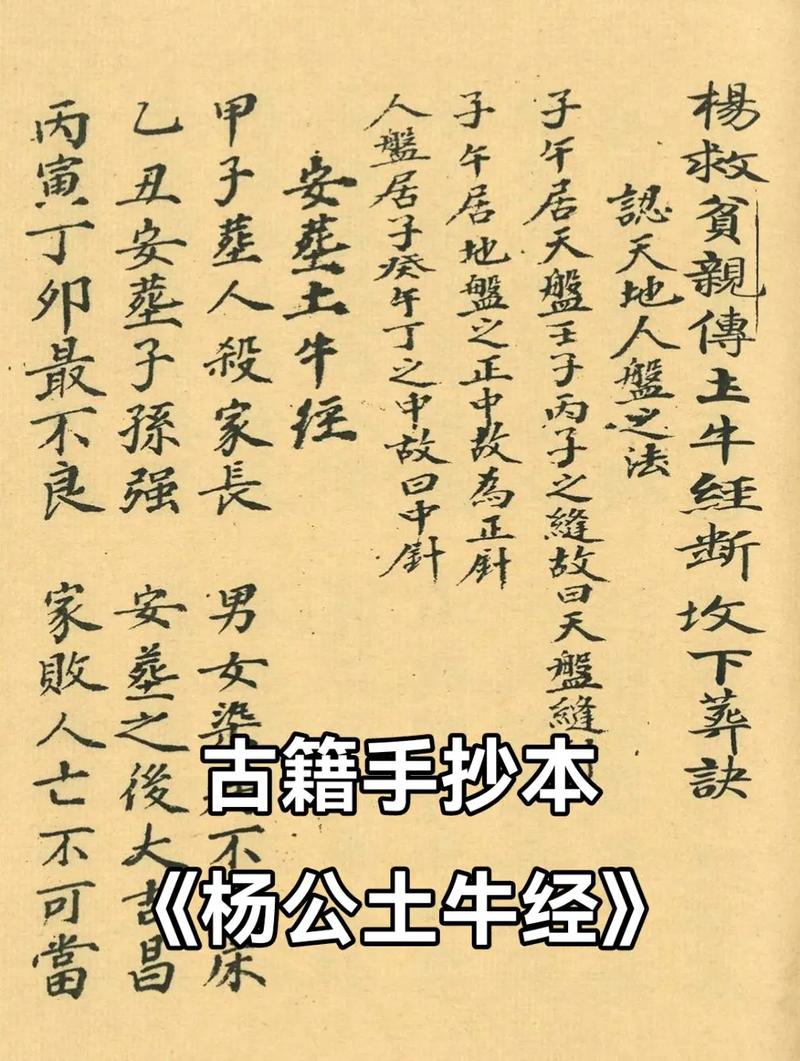 楊救貧親傳土牛経断坟下葬訣
認天地人盤之法
子午居天盤壬子丙子之縫故曰天盤縫
子午居地盤之正中故為正針
人盤居子癸午丁之中故曰中針
安塟土牛経
甲子塟人殺家長 男女染不床
乙丑安塟子孫强 安塟之後大吉昌
丙寅丁卯最不良 家敗人亡不可當
古籍手抄本
《杨公土牛经》